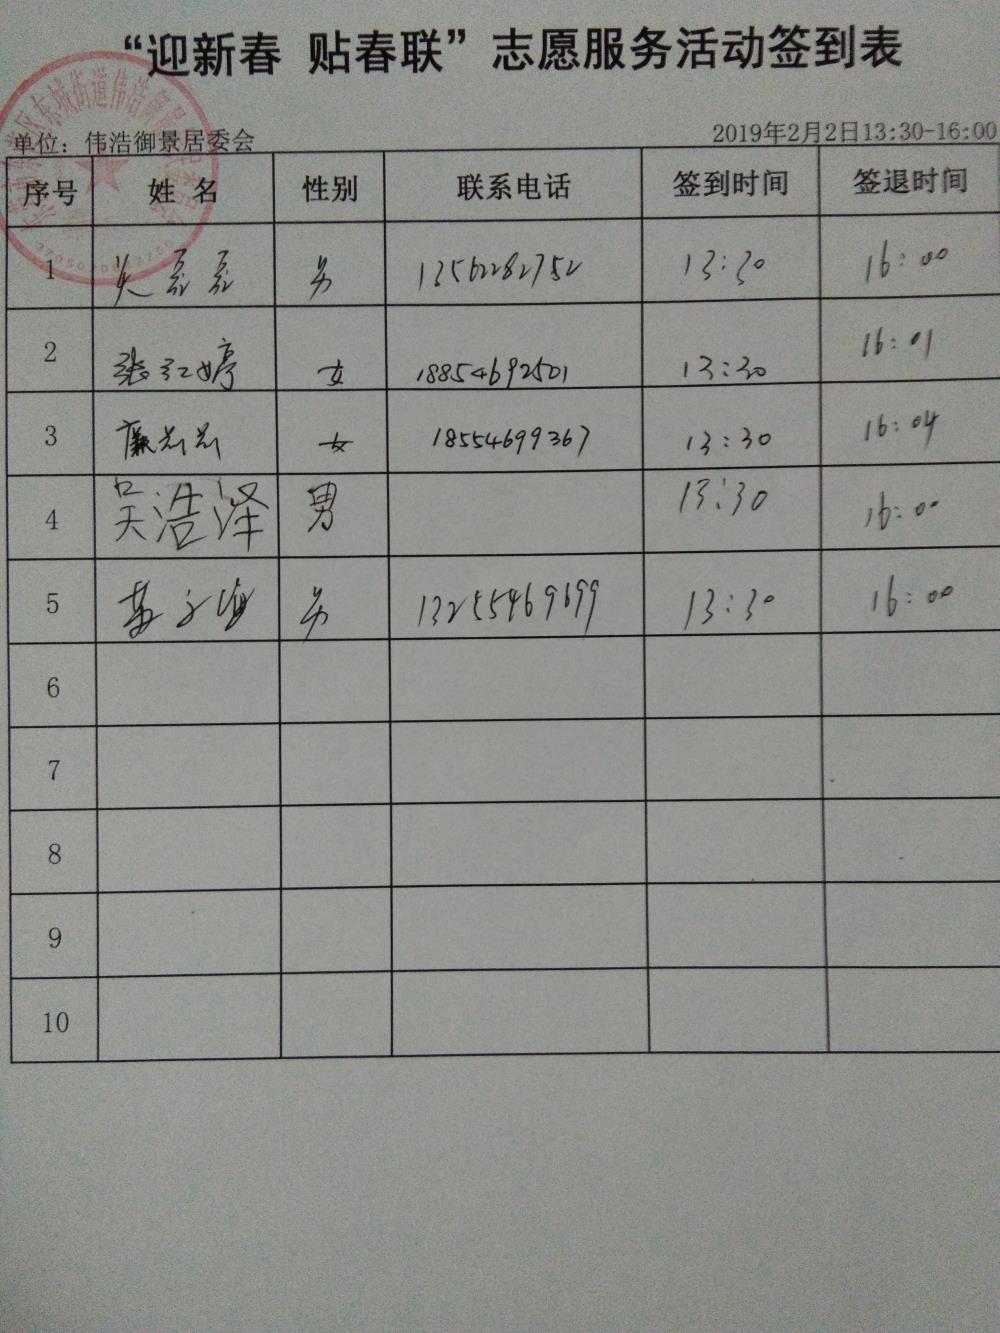 “迎新春 贴春联”志愿服务活动签到表
单位：伟浩御景居委会 2019年2月2日13:30-16:00
序号 姓 名 性别 联系电话 签到时间 签退时间
1 磊磊 男 13562282752 13:30 16:00
2 张红婷 女 18854692501 13:30 16:01
3 女 18554699367 13:30 16:04
4 吴浩泽 男 13:30 16:00
5 男 13255469699 13:30 16:00
6
7
8
9
10